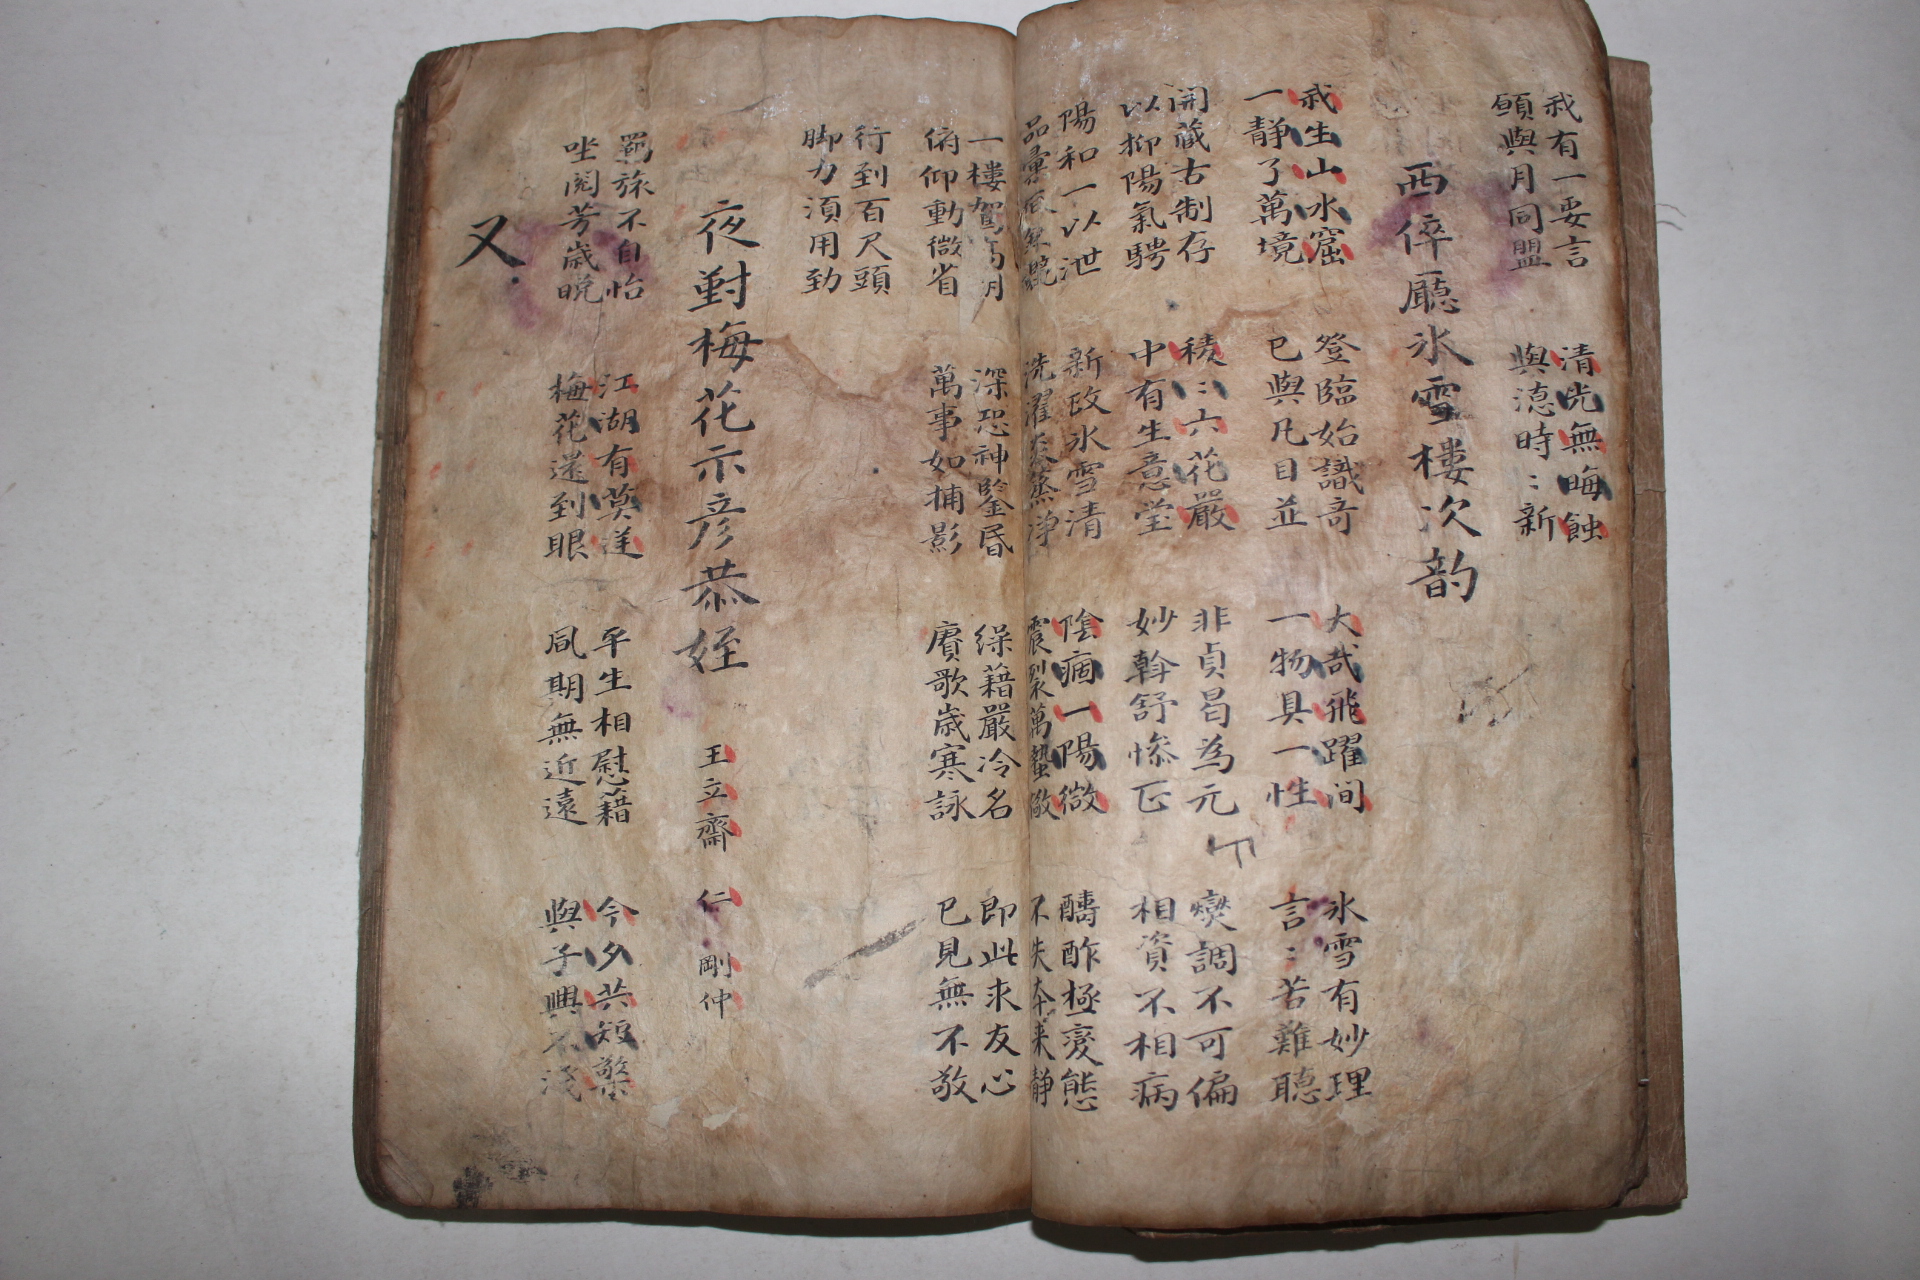 我有一要言
願與月同盟
清光無晦蝕
與德時〻新
西倅廳氷雪樓次韵
我生山水窟
一靜了萬境
登臨始識奇
已與凡目並
大哉飛躍间
一物具一性
氷雪有妙理
言〻苦難聽
開藏古制存
以抑陽氣騁
稜〻六花嚴
中有生意瑩
非貞曷為元
妙斡舒慘正
燮調不可偏
相資不相病
陽和一以泄
品彙
新政氷雪清
洗濯炎蒸淨
陰痼一陽微
震裂萬蟄
醻酢極变態
不失本来靜
一樓駕高明
俯仰動微省
深恐神鑒昏
萬事如捕影
繰藉嚴冷名
賡歌歲寒詠
即此求友心
已見無不敬
行到百尺頭
脚力須用勁
夜對梅花示彦恭姪 王立齋 仁 剛仲
羁旅不自怡
坐閱芳歲晚
江湖有莫逆
梅花還到眼
平生相慰藉
風期無近遠
今夕共短檠
與子興不淺
又